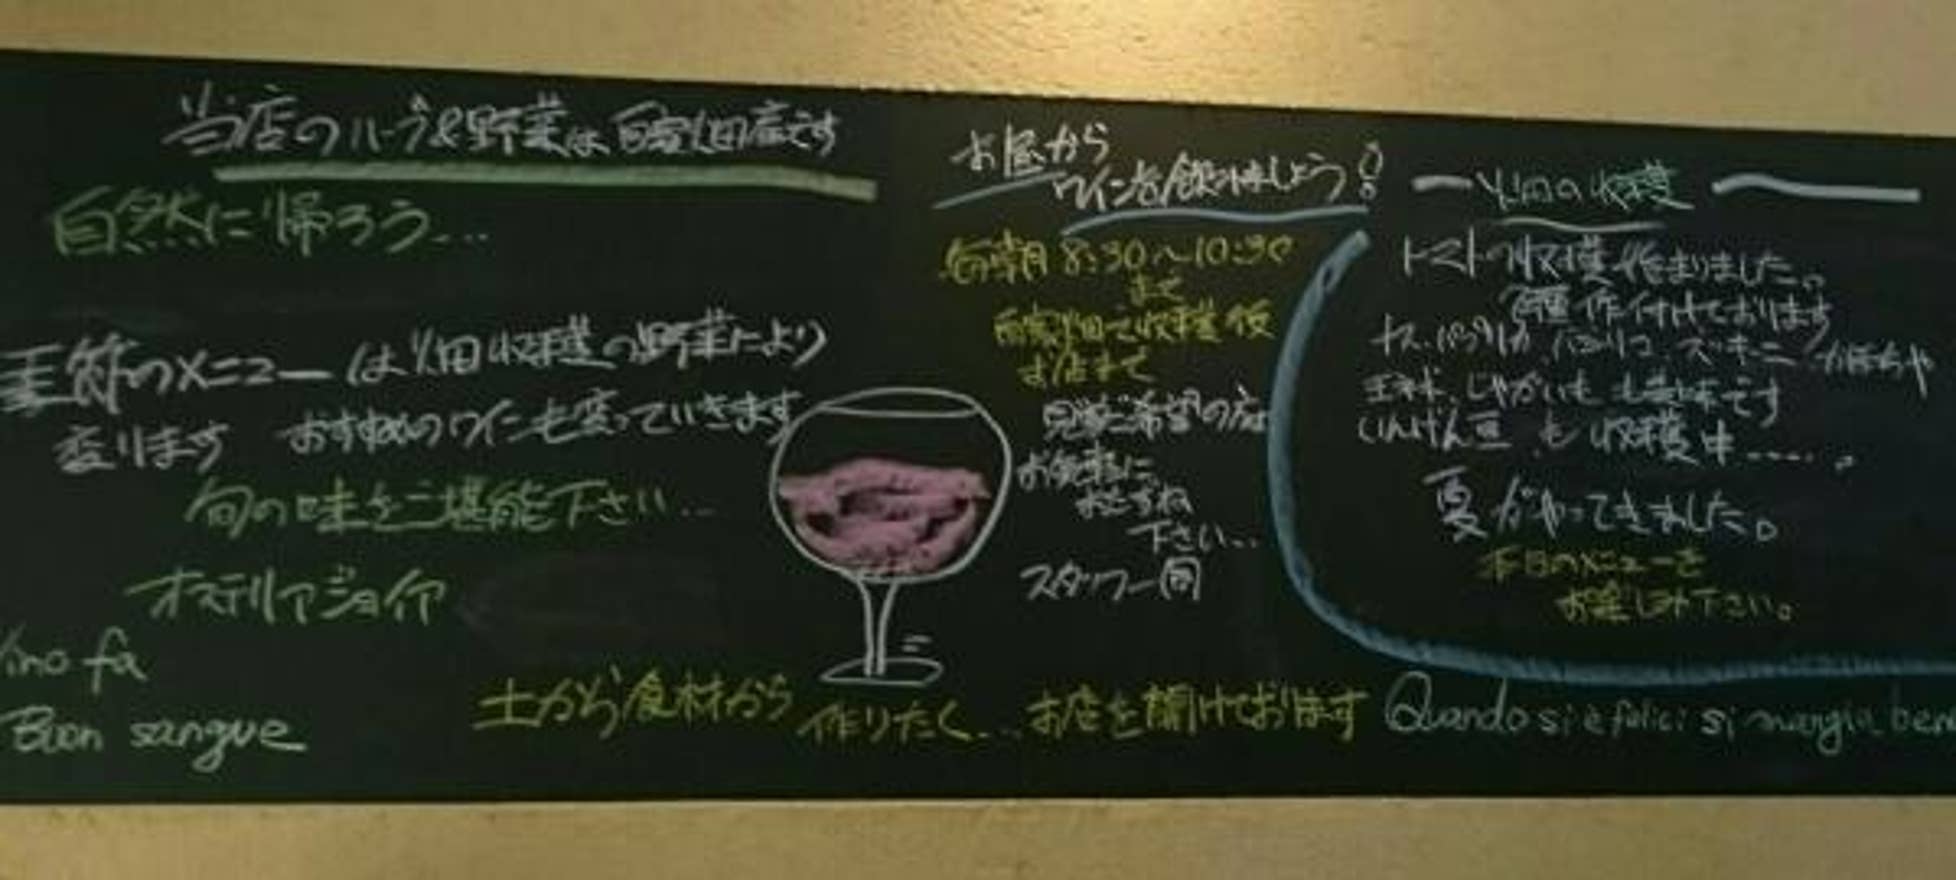 当店のハーブ&野菜は自家畑産です
自然に帰ろう...
季節のメニューは畑収穫の野菜により
変ります おすすめのワインも変っていきます
旬の味をご堪能下さい...
オステリアジョイア
Vino fa
Buon sangue
土から食材から 作りたく...お店を開けております
お昼から
ワインを飲みましょう!
毎朝8:30〜10:30
まで
自家畑で収穫後
お店まで
見学ご希望の方
お気軽に
おたずね
下さい...
スタッフ一同
畑の収穫
トマトの収穫始まりました。
種作付けております
ナス、パプリカ、バジリコ、ズッキーニ、かぼちゃ
玉ネギ、じゃがいも も美味です
いんげん豆も収穫中.....。
夏がやってきました。
本日のメニューを
お楽しみ下さい。
Quando si è felici si mangia ben